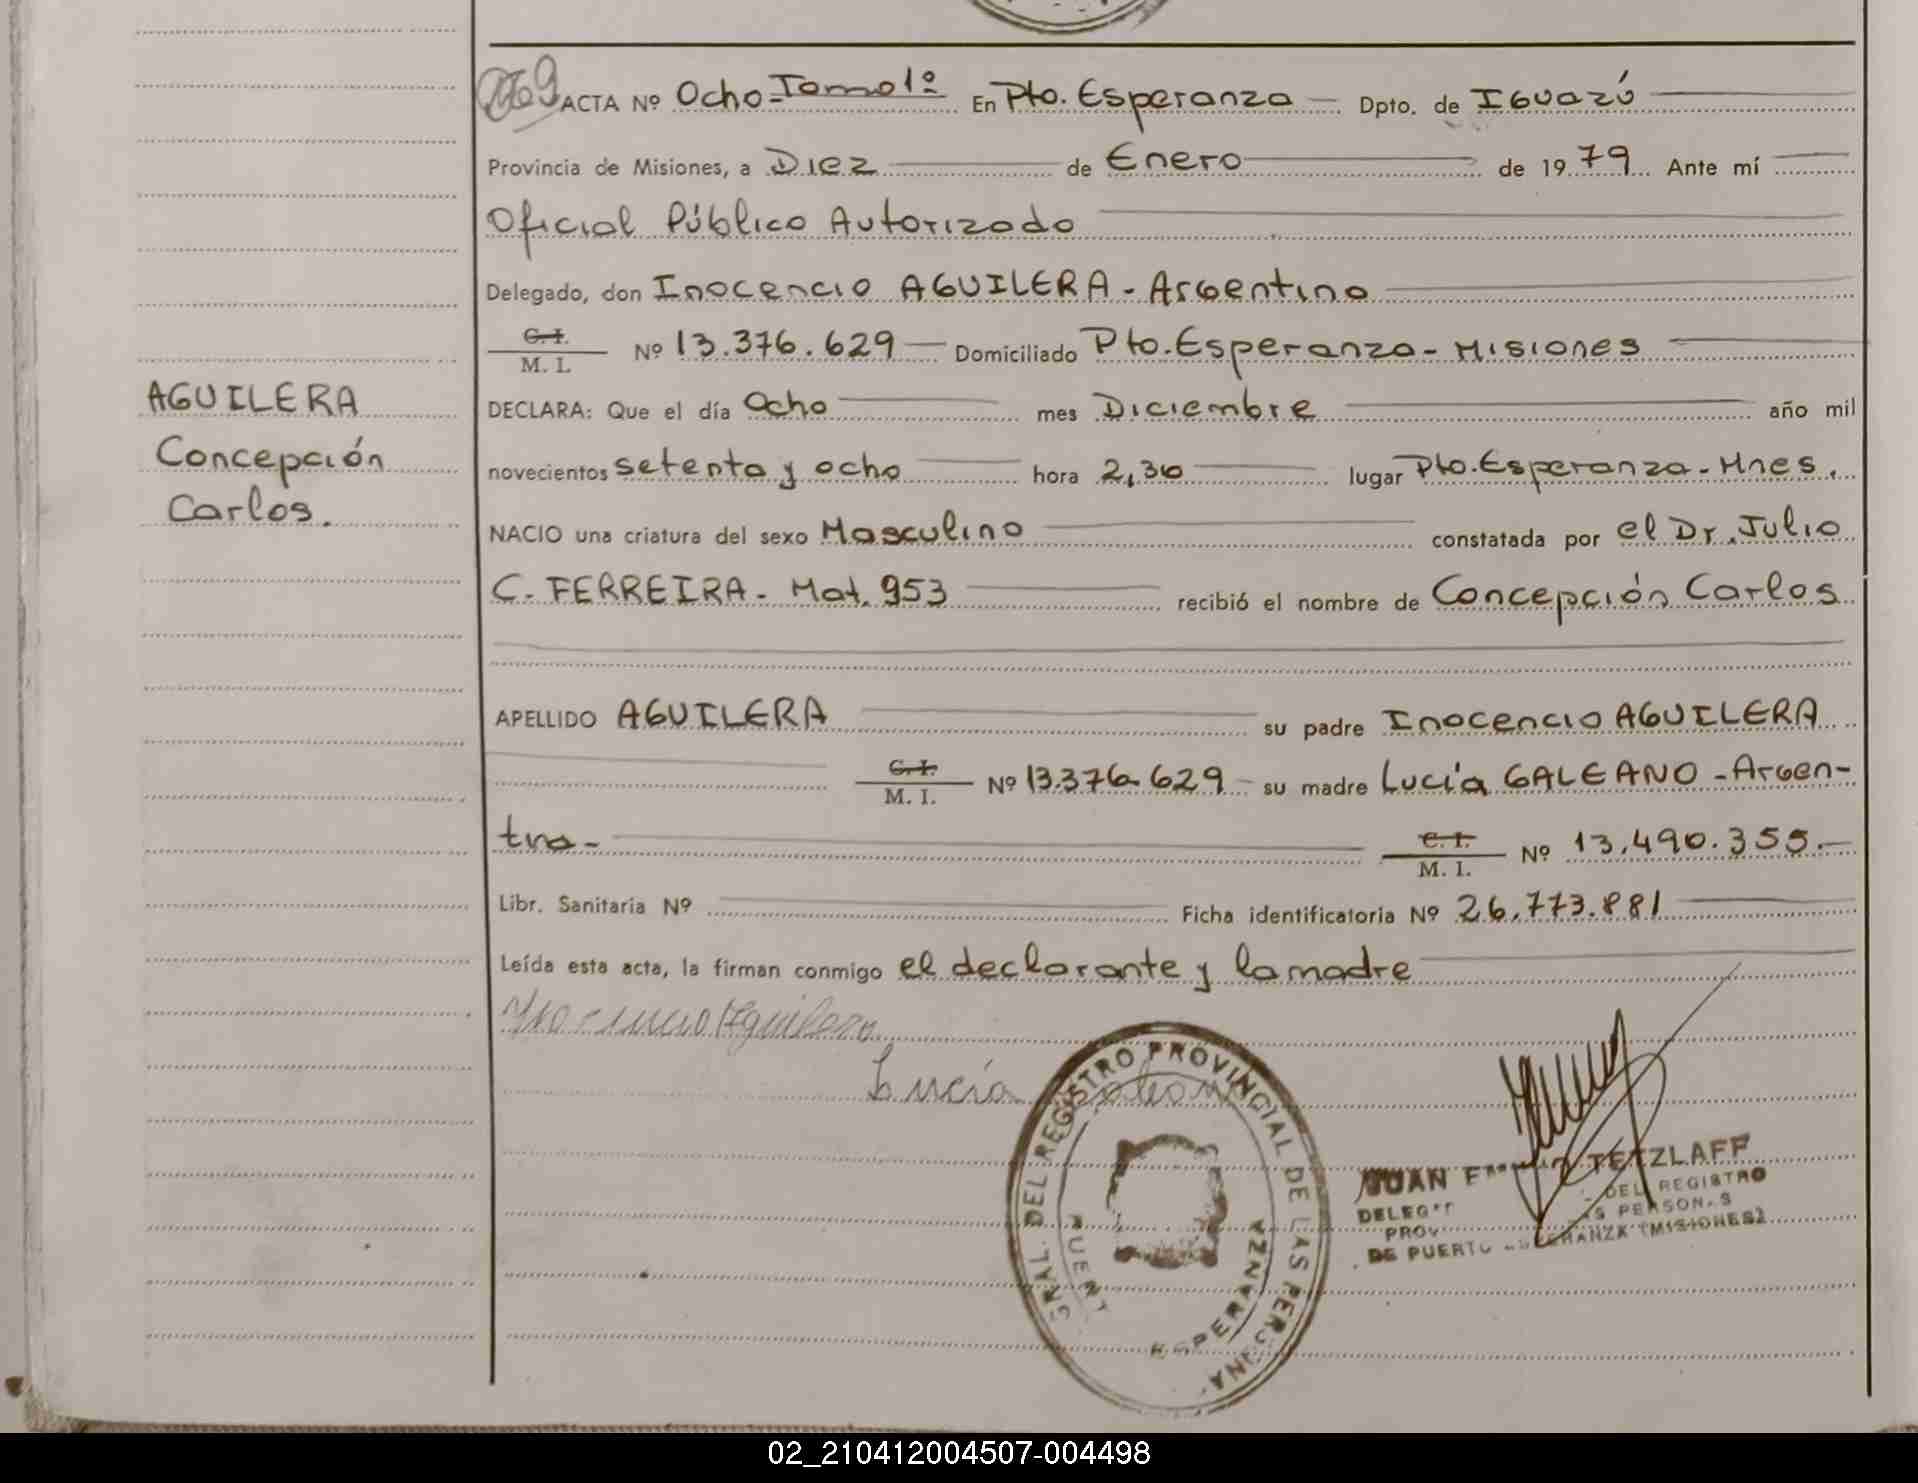 ACTA Nº Ocho-Tomo 1º En Pto. Esperanza Dpto. de Iguazú
Provincia de Misiones, a Diez de Enero de 1979 Ante mí
Oficial Público Autorizado
Delegado, don Inocencio AGUILERA - Argentino
C. I.
M. I. Nº 13.376.629 Domiciliado Pto. Esperanza - Misiones
AGUILERA
Concepción
Carlos.
DECLARA: Que el día Ocho mes Diciembre año mil
novecientos setenta y ocho hora 2,30 lugar Pto. Esperanza - Mnes.
NACIO una criatura del sexo Masculino constatada por el Dr. Julio
C. FERREIRA - Mat. 953 recibió el nombre de Concepción Carlos
APELLIDO AGUILERA su padre Inocencio AGUILERA
C. I.
M. I. Nº 13.376.629 - su madre Lucía GALEANO - Argen-
tna -
C. I.
M. I. Nº 13.490.355.-
Libr. Sanitaria Nº Ficha identificatoria Nº 26.773.881
Leída esta acta, la firman conmigo el declarante y la madre
Inocencio Aguilera
Lucía
GRAL. DEL REGISTRO PROVINCIAL DE LAS PERSONAS
ESPERANZA
JUAN TETZLAFF
DEL REGISTRO
DE PUERTO ESPERANZA (MISIONES)
02_210412004507-004498